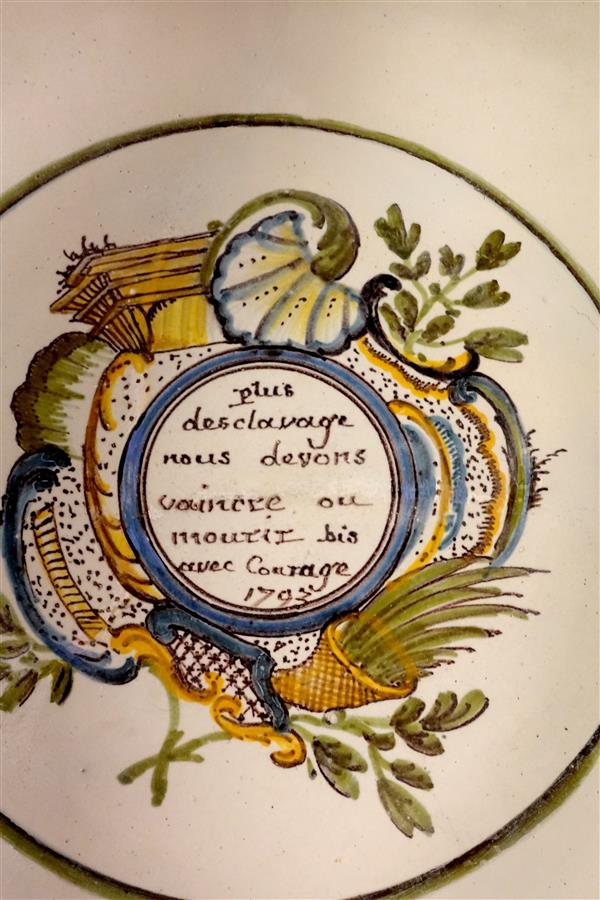 plus
desclavage
nous devons
vaincre ou
mourir bis
avec Courage
1793